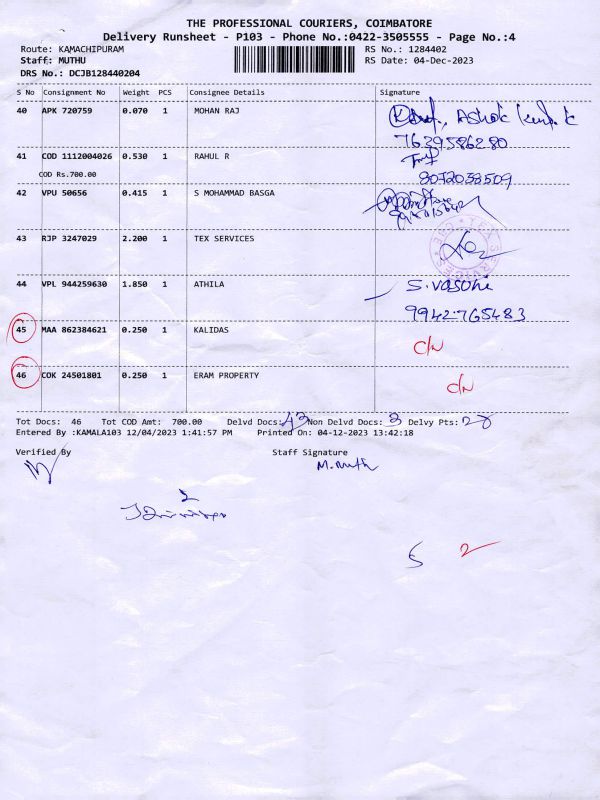 THE PROFESSIONAL COURIERS, COIMBATORE
Delivery Runsheet - P103 - Phone No.:0422-3505555 - Page No.:4
Route: KAMACHIPURAM RS No.: 1284402
Staff: MUTHU RS Date: 04-Dec-2023
DRS No.: DCJB128440204
S No Consignment No Weight PCS Consignee Details Signature
40 APK 720759 0.070 1 MOHAN RAJ
Ashok Kumar K
7639586280
41 COD 1112004026 0.530 1 RAHUL R
COD Rs.700.00 8072038509
42 VPU 50656 0.415 1 S MOHAMMAD BASGA
43 RJP 3247029 2.200 1 TEX SERVICES
TEX SERVICES CBE
44 VPL 944259630 1.850 1 ATHILA S. Vasuhi
9942765483
45 MAA 862384621 0.250 1 KALIDAS C/N
46 COK 24501801 0.250 1 ERAM PROPERTY C/N
Tot Docs: 46 Tot COD Amt: 700.00 Delvd Docs: 43 Non Delvd Docs: 3 Delvy Pts: 28
Entered By :KAMALA103 12/04/2023 1:41:57 PM Printed On: 04-12-2023 13:42:18
Verified By Staff Signature
M. Muth
2
5 2